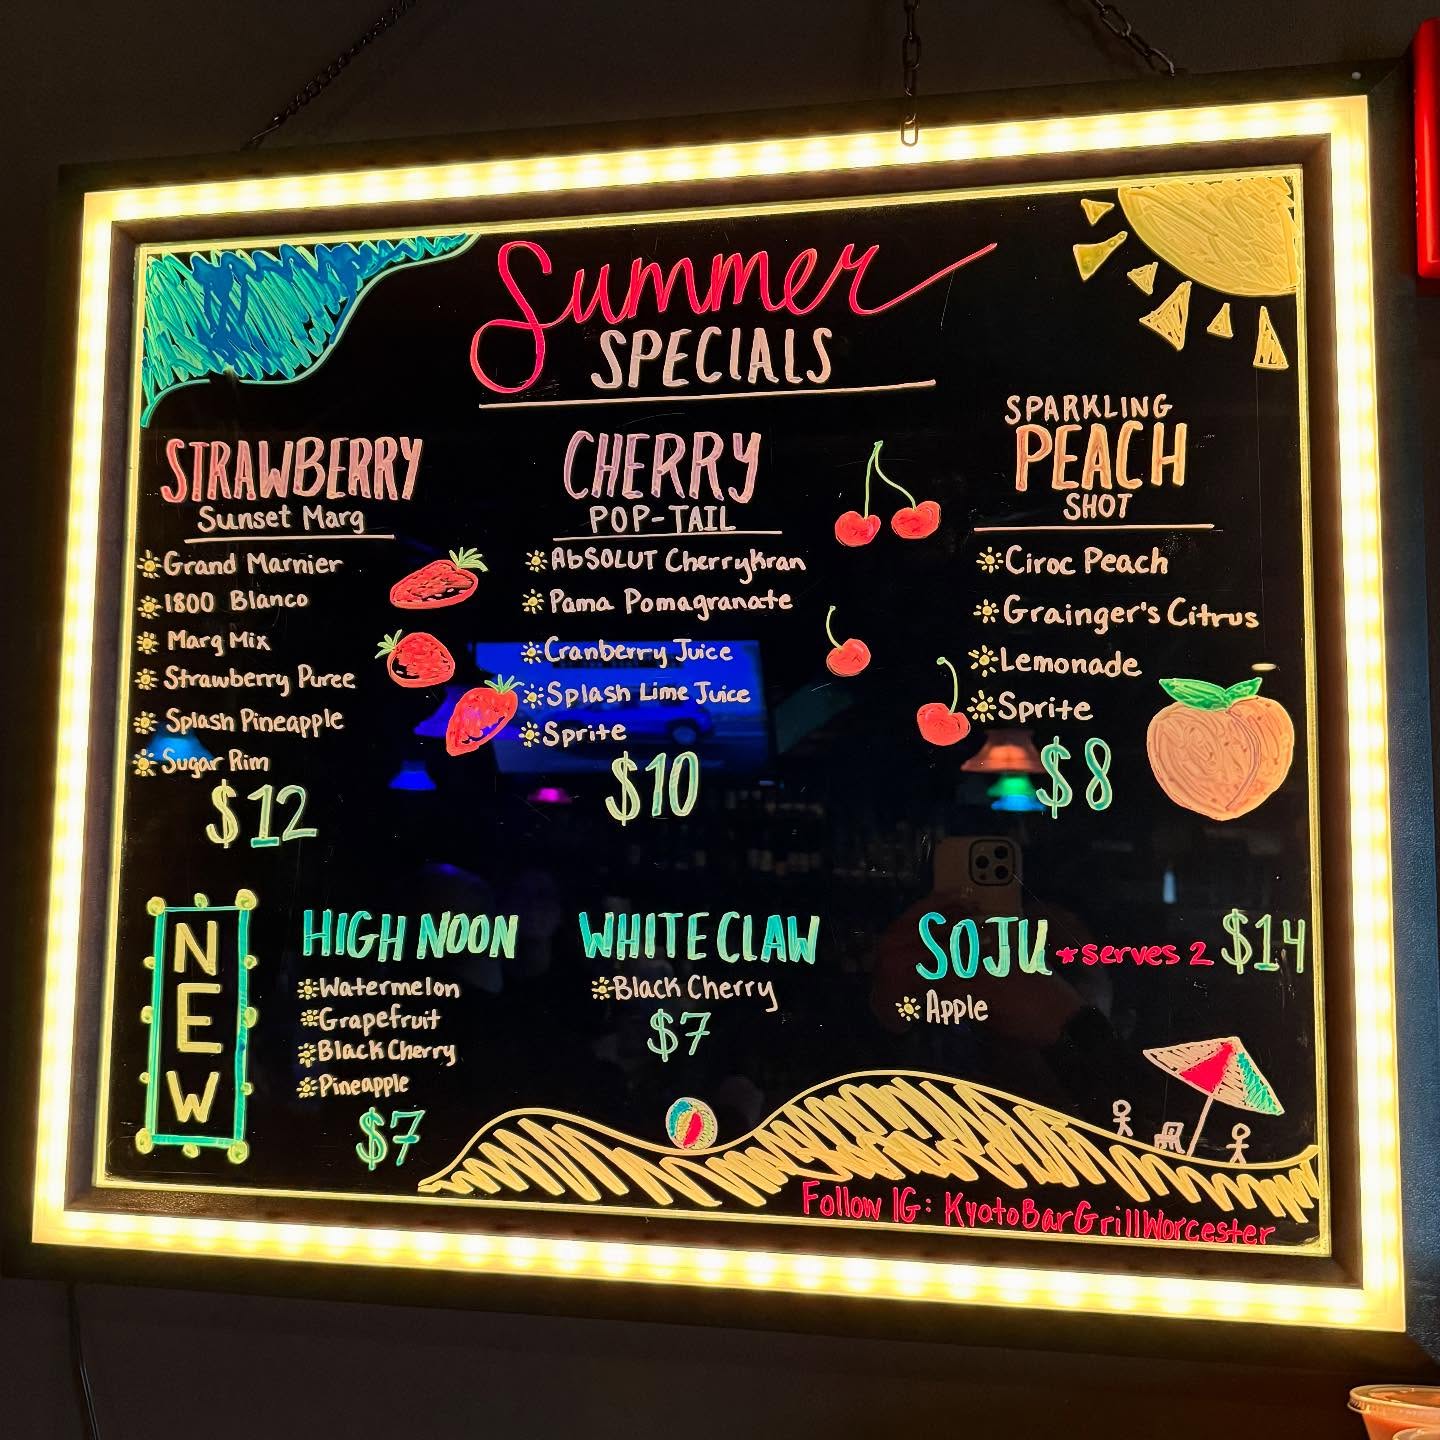 Summer
SPECIALS
STRAWBERRY
Sunset Marg
Grand Marnier
1800 Blanco
Marg Mix
Strawberry Puree
Splash Pineapple
Sugar Rim
$12
CHERRY
POP-TAIL
AbSOLUT CherryKran
Pama Pomagranate
Cranberry Juice
Splash Lime Juice
Sprite
$10
SPARKLING
PEACH
SHOT
Ciroc Peach
Grainger's Citrus
Lemonade
Sprite
$8
NEW
HIGH NOON
Watermelon
Grapefruit
Black Cherry
Pineapple
$7
WHITE CLAW
Black Cherry
$7
SOJU *serves 2 $14
Apple
Follow IG: KyotoBarGrillWorcester